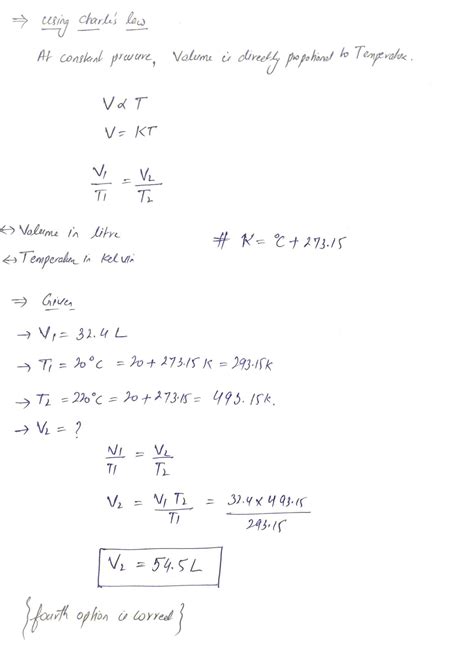 ⇒ Using Charle's law
At constant pressure, Volume is directly propotional to Temperature.
V ∝ T
V = KT
V₁/T₁ = V₂/T₂
↔ Volume in litre
# K = °C + 273.15
↔ Temperature in Kelvin
⇒ Given
→ V₁ = 32.4 L
→ T₁ = 20°C = 20 + 273.15 K = 293.15K
→ T₂ = 220°C = 20 + 273.15 = 493.15K.
→ V₂ = ?
V₁/T₁ = V₂/T₂
V₂ = V₁ T₂/T₁ = 32.4 × 493.15/293.15
V₂ = 54.5 L
{fourth option is correct}